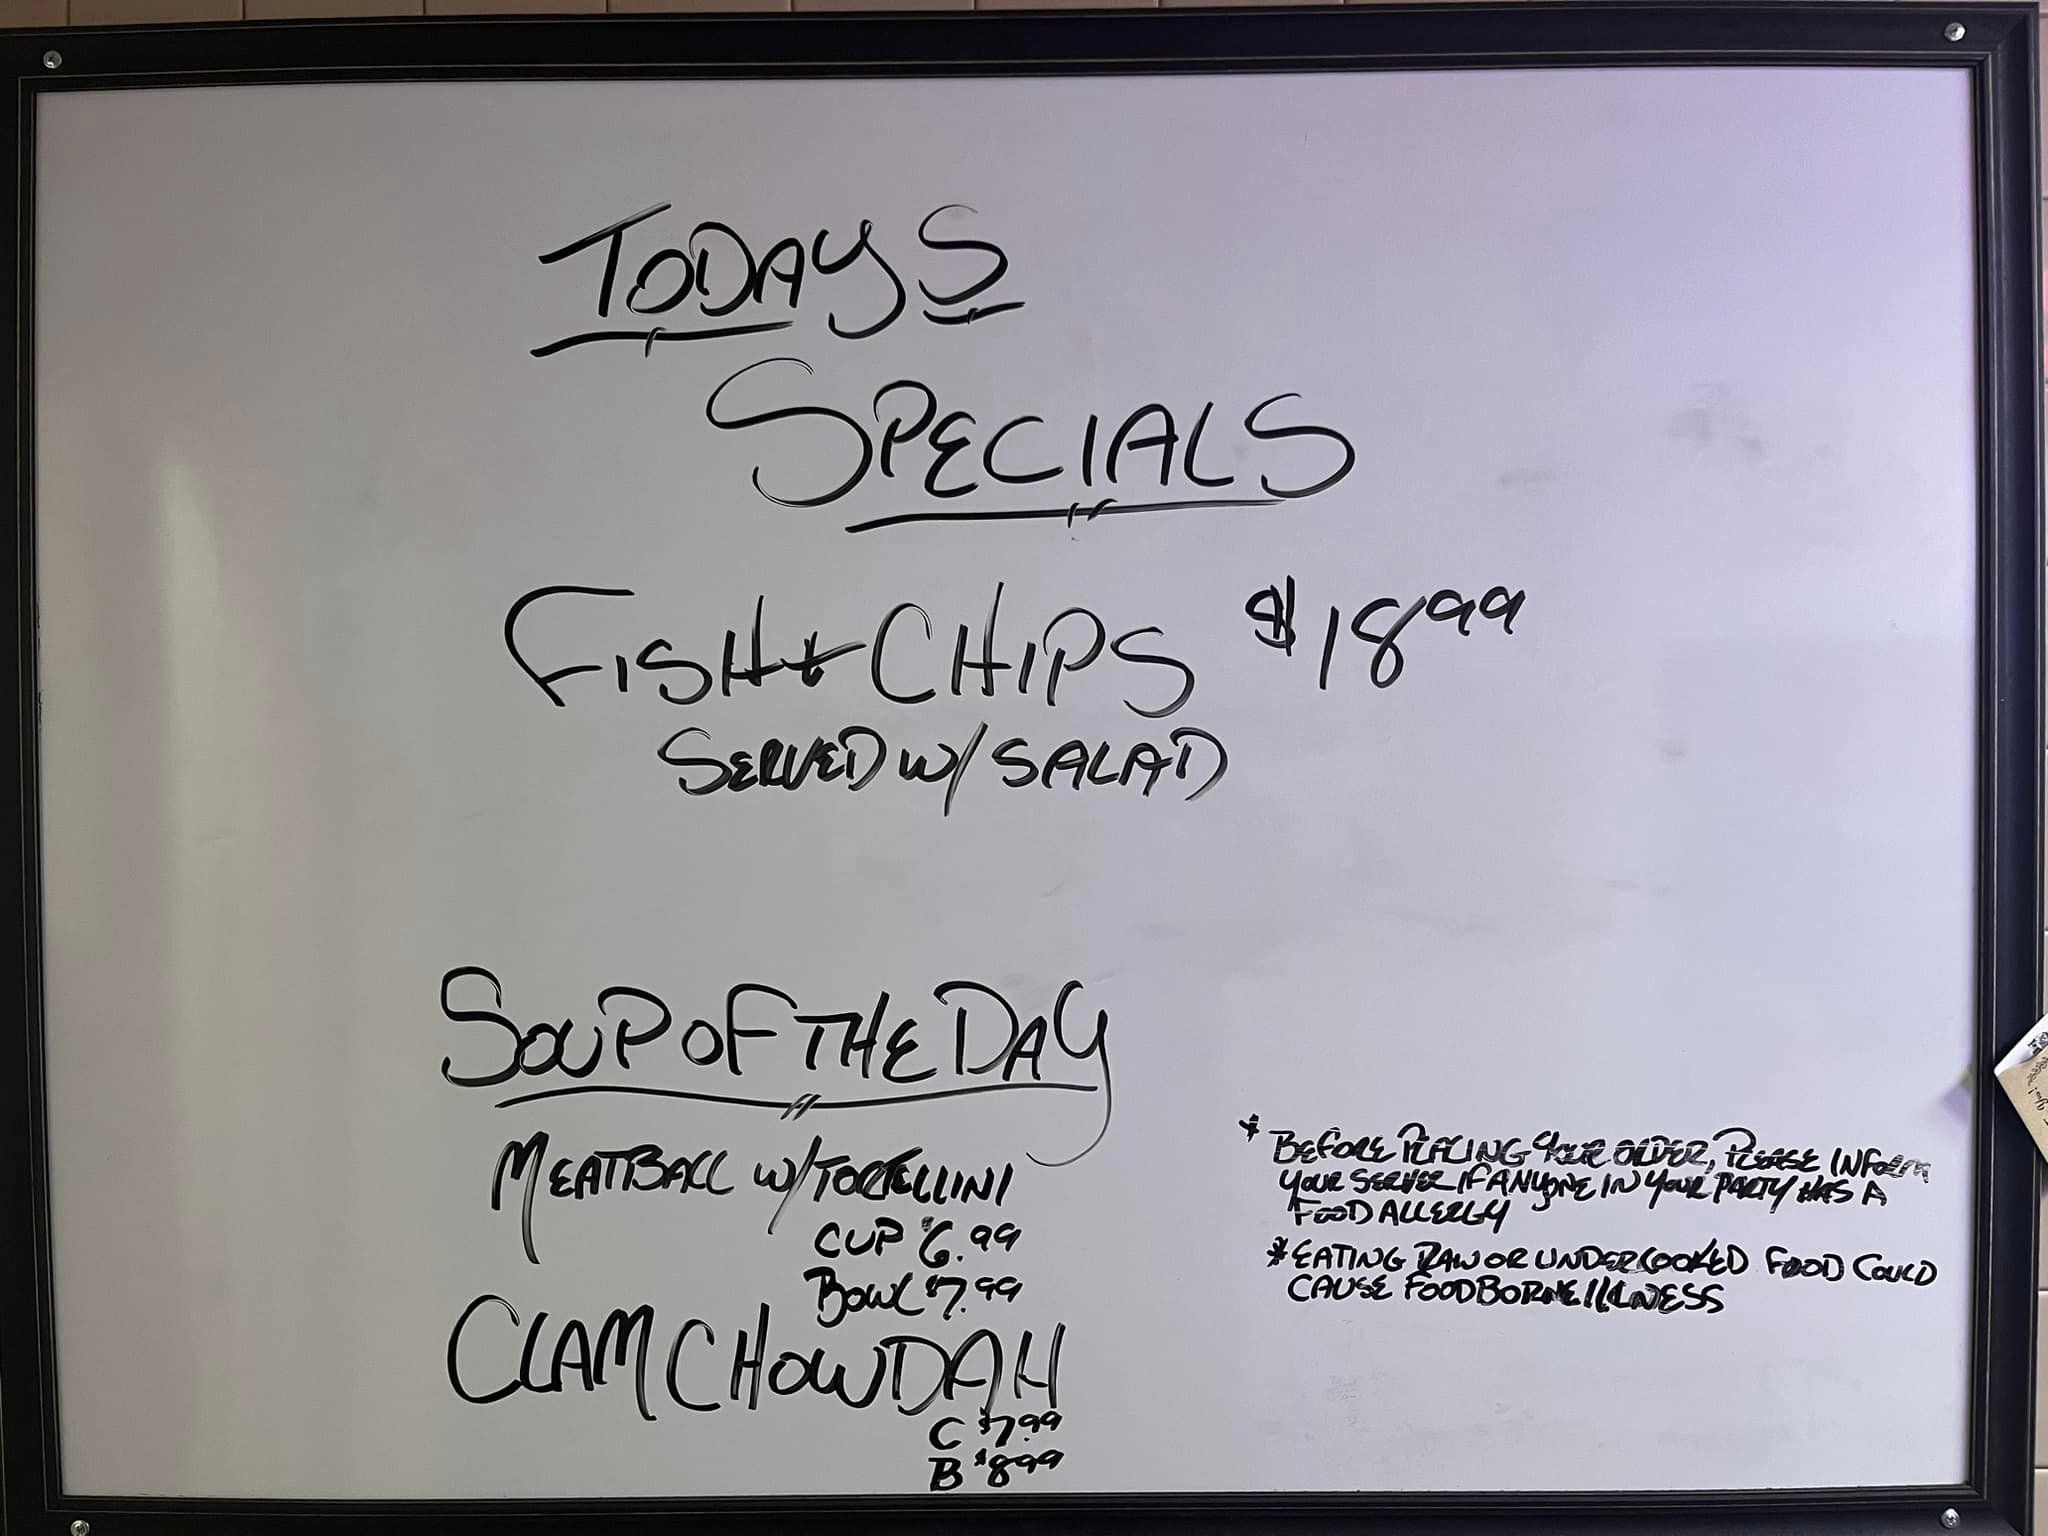 TODAYS
SPECIALS
FISH + CHIPS $18.99
SERVED W/ SALAD
SOUP OF THE DAY
MEATBALL W/ TORTELLINI
CUP $6.99
BOWL $7.99
CLAM CHOWDAH
C $7.99
B $8.99
* BEFORE PLACING YOUR ORDER, PLEASE INFORM
YOUR SERVER IF ANYONE IN YOUR PARTY HAS A
FOOD ALLERGY
* EATING RAW OR UNDERCOOKED FOOD COULD
CAUSE FOODBORNE ILLNESS